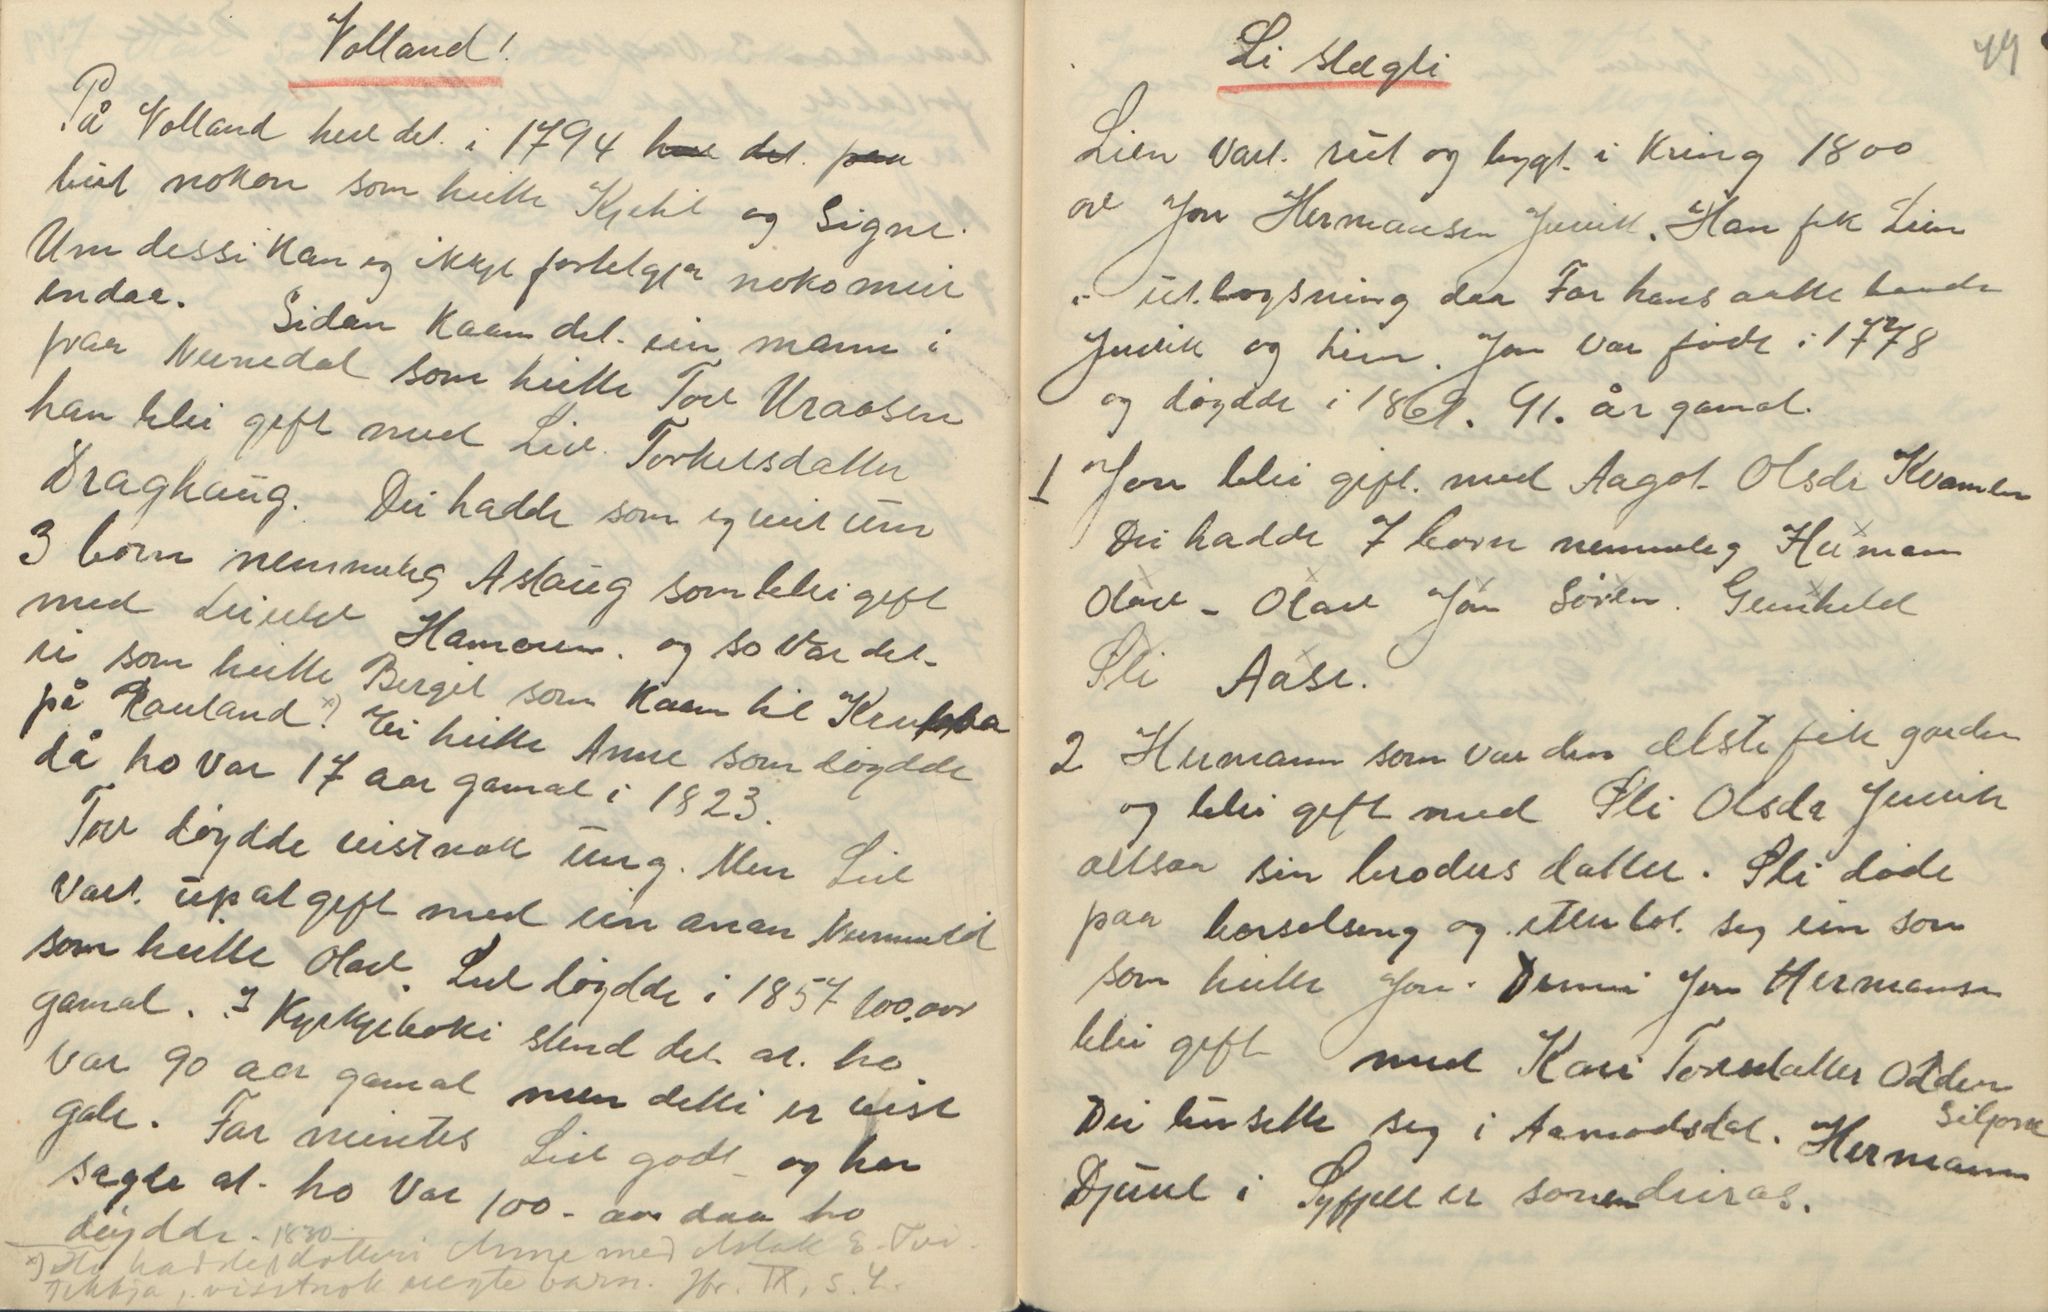 Volland!
På Volland heve det i 1794 heve det paa
buet nokon som heitte Kjetil og Signe.
Um dessi kan eg ikkje fortelgja noko meir
endaa. Sidan kaam det ein mann i
fraa Numedal som heitte Tov Uraasen
han blei gift med Liv Torkelsdatter
Draghaug. Dei hadde som eg veit um
3 born nemmeleg Aslaug som blei gift
med Leivulv Hamaren. og so var det
ei som heitte Bergit som kaam til Krubba
på Rauland x)! Ei heitte Anne som døydde
då ho var 17 aar gamal i 1823.
Tov døydde visst nok ung. Men Liv
vart upat gift med ein anan Numedøl
som heitte Olav. Liv døydde i 1857 100 aar
gamal. I Kyrkjeboki stend det at ho
var 90 aar gamal men detti er visst
gale. Far mintes Liv godt og han
sagde at ho var 100 aar daa ho
døydde. 1830
x) Ho hadde dotteri Anne med Aslak E. Tvi-
tekkja, visstnok uegte barn. Hr. IX, s. 4.
49
Li slægti
Lien vart rut og bygt i kring 1800
av Jon Hermansen Juvik. Han fek Lien
i utløysning daa Far hans aatte baade
Juvik og Lien. Jon var født i 1778
og døydde i 1869. 91. år gamal.
1 Jon blei gift med Aagot Olsdr Kvamben
Dei hadde 7 born nemmeleg Herman
Olav - Olav Jon Søren. Gunhild
Sli Aase.
2 Hermann som var den ælste fek garden
og blei gift med Sli Olsdr Juvik
altsaa sin broders datter. Sli døde
paa barselseng og etterlot seg ein son
som heitte Jon. Denni Jon Hermansen
blei gift med Kari Torsdatter Odden
Siljord
Dei busette seg i Aamodsdal. Hermann
Djuve i Syftjell er son deiras.